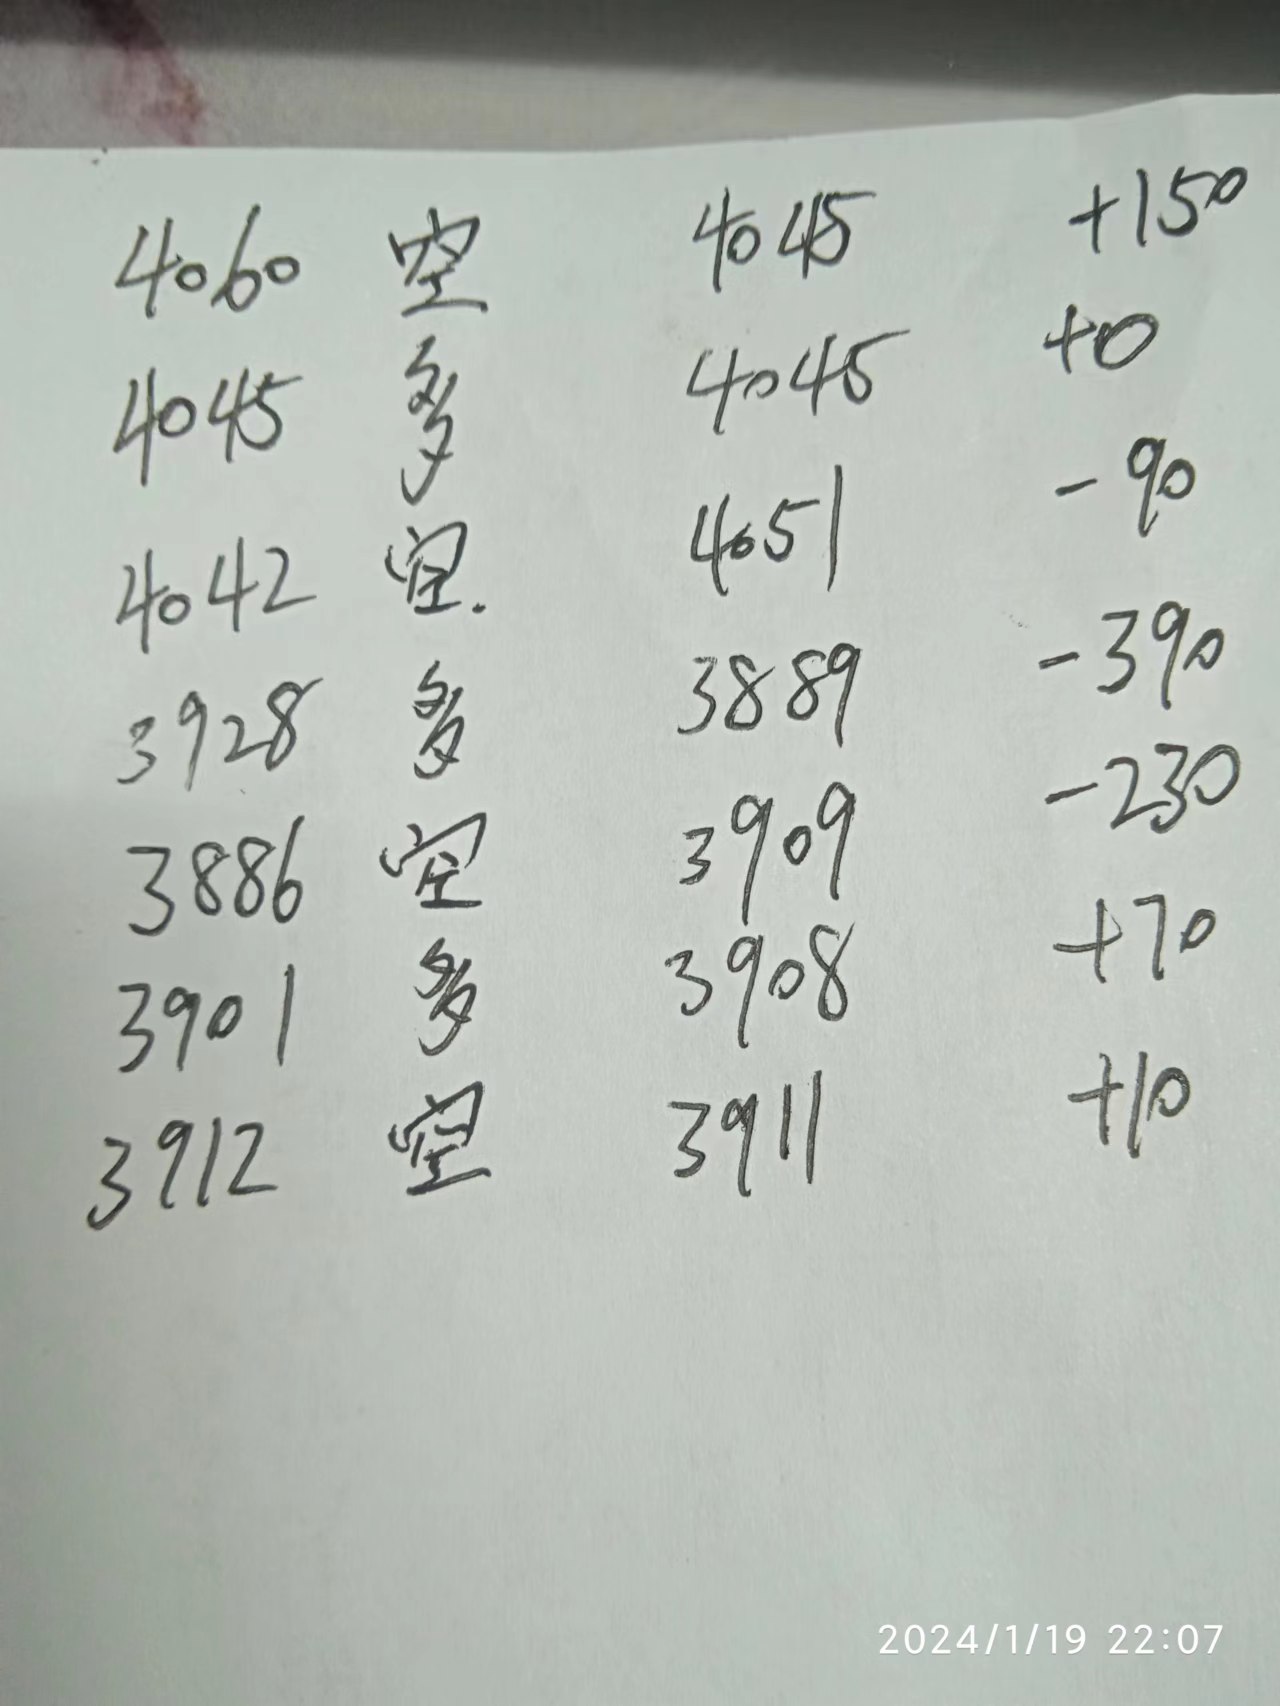 4060 空 4045 +150
4045 多 4045 +0
4042 空. 4051 -90
3928 多 3889 -390
3886 空 3909 -230
3901 多 3908 +70
3912 空 3911 +10
2024/1/19 22:07